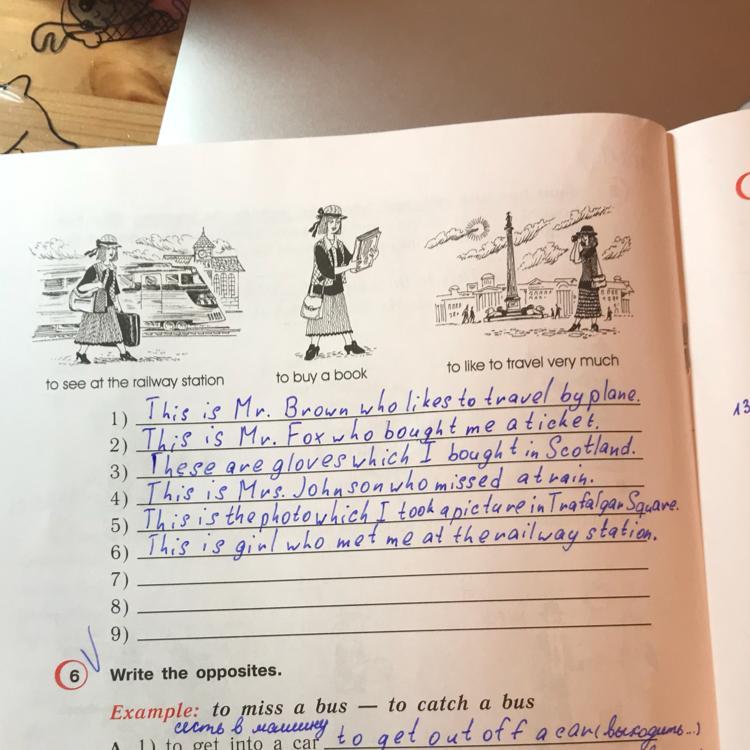 to see at the railway station
to buy a book
to like to travel very much
1) This is Mr. Brown who likes to travel by plane.
2) This is Mr. Fox who bought me a ticket.
3) These are gloves which I bought in Scotland.
4) This is Mrs. Johnson who missed a train.
5) This is the photo which I took a picture in Trafalgar Square.
6) This is girl who met me at the railway station.
7)
8)
9)
13
6 Write the opposites.
Example: to miss a bus — to catch a bus
сесть в машину
A. 1) to get into a car to get out off a car (выходить...)